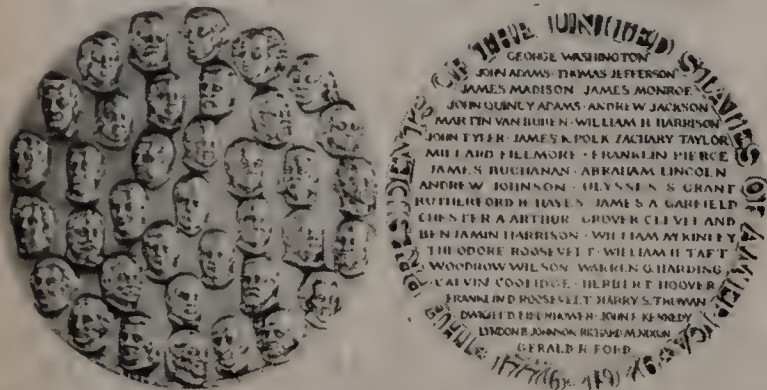 THE PRESIDENTS OF THE UNITED STATES OF AMERICA
GEORGE WASHINGTON
JOHN ADAMS · THOMAS JEFFERSON
JAMES MADISON JAMES MONROE
JOHN QUINCY ADAMS · ANDREW JACKSON
MARTIN VAN BUREN · WILLIAM H HARRISON
JOHN TYLER · JAMES K POLK ZACHARY TAYLOR
MILLARD FILLMORE · FRANKLIN PIERCE
JAMES BUCHANAN · ABRAHAM LINCOLN
ANDREW JOHNSON · ULYSSES S GRANT
RUTHERFORD H HAYES JAMES A GARFIELD
CHESTER A ARTHUR GROVER CLEVELAND
BENJAMIN HARRISON · WILLIAM MCKINLEY
THEODORE ROOSEVELT · WILLIAM H TAFT
WOODROW WILSON WARREN G HARDING
CALVIN COOLIDGE · HERBERT HOOVER
FRANKLIN D ROOSEVELT HARRY S. TRUMAN
DWIGHT D EISENHOWER · JOHN F KENNEDY
LYNDON B JOHNSON RICHARD M. NIXON
GERALD R FORD